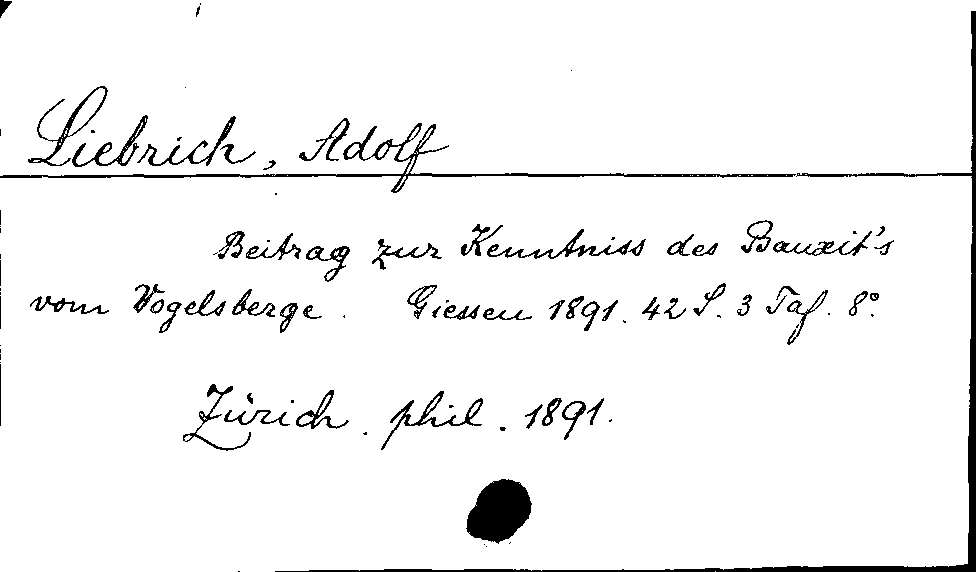 Liebrich, Adolf
Beitrag zur Kenntniss des Bauxit's
vom Vogelsberge. Giessen 1891. 42 S. 3 Taf. 8°.
Zürich. phil. 1891.